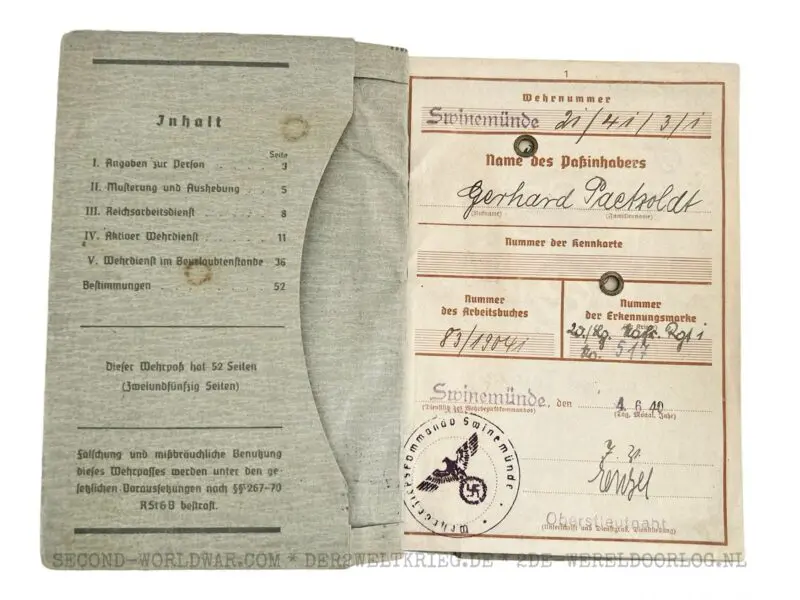 Inhalt
Seite
I. Angaben zur Person . . . . 3
II. Musterung und Aushebung . . 5
III. Reichsarbeitsdienst . . . . 8
IV. Aktiver Wehrdienst . . . . 11
V. Wehrdienst im Beurlaubtenstande 36
Bestimmungen . . . . . 52
Dieser Wehrpaß hat 52 Seiten
(Zweiundfünfzig Seiten)
Fälschung und mißbräuchliche Benutzung
dieses Wehrpasses werden unter den ge-
setzlichen Voraussetzungen nach §§ 267-70
RStGB bestraft.
1
Wehrnummer
Swinemünde 21/41/3/1
Name des Paßinhabers
Gerhard Paetzoldt
(Rufname) (Familienname)
Nummer der Kennkarte
Nummer
des Arbeitsbuches
83/19041
Nummer
der Erkennungsmarke
517
Swinemünde, den 4.6.40
(Tag, Monat, Jahr)
Wehrbezirkskommando Swinemünde
Oberstleutnant
(Unterschrift und Dienstgrad, Dienststellung)
SECOND-WORLDWAR.COM * DER2WELTKRIEG.DE * 2DE-WERELDOORLOG.NL